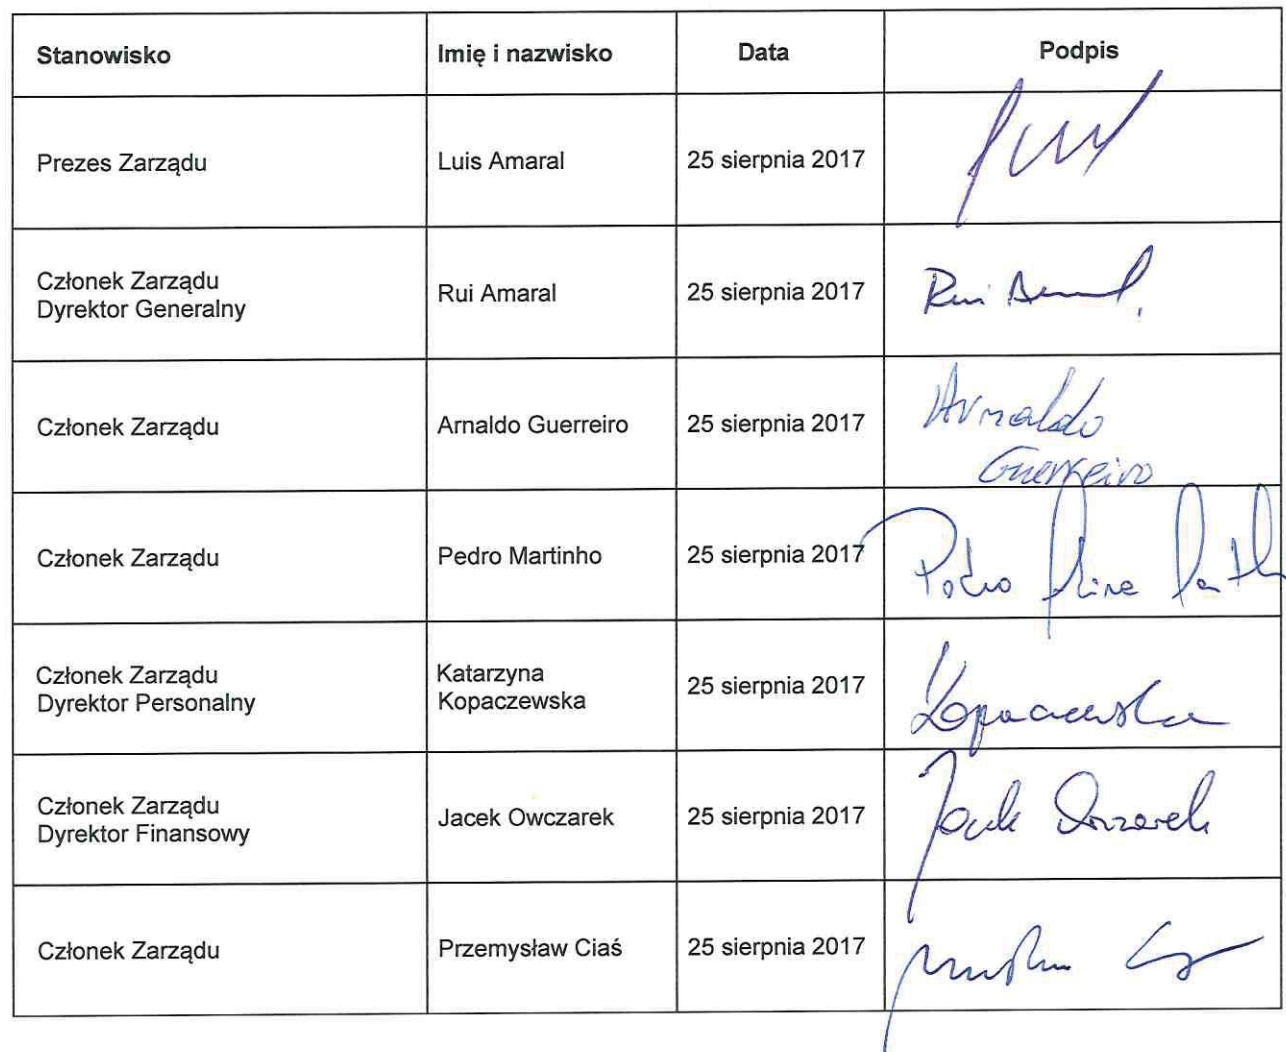 Stanowisko Imię i nazwisko Data Podpis
Prezes Zarządu Luis Amaral 25 sierpnia 2017
Członek Zarządu
Dyrektor Generalny Rui Amaral 25 sierpnia 2017 Rui
Członek Zarządu Arnaldo Guerreiro 25 sierpnia 2017 Arnaldo
Guerreiro
Członek Zarządu Pedro Martinho 25 sierpnia 2017 Pedro
Członek Zarządu
Dyrektor Personalny Katarzyna
Kopaczewska 25 sierpnia 2017 Kopaczewska
Członek Zarządu
Dyrektor Finansowy Jacek Owczarek 25 sierpnia 2017 Jacek Owczarek
Członek Zarządu Przemysław Ciaś 25 sierpnia 2017